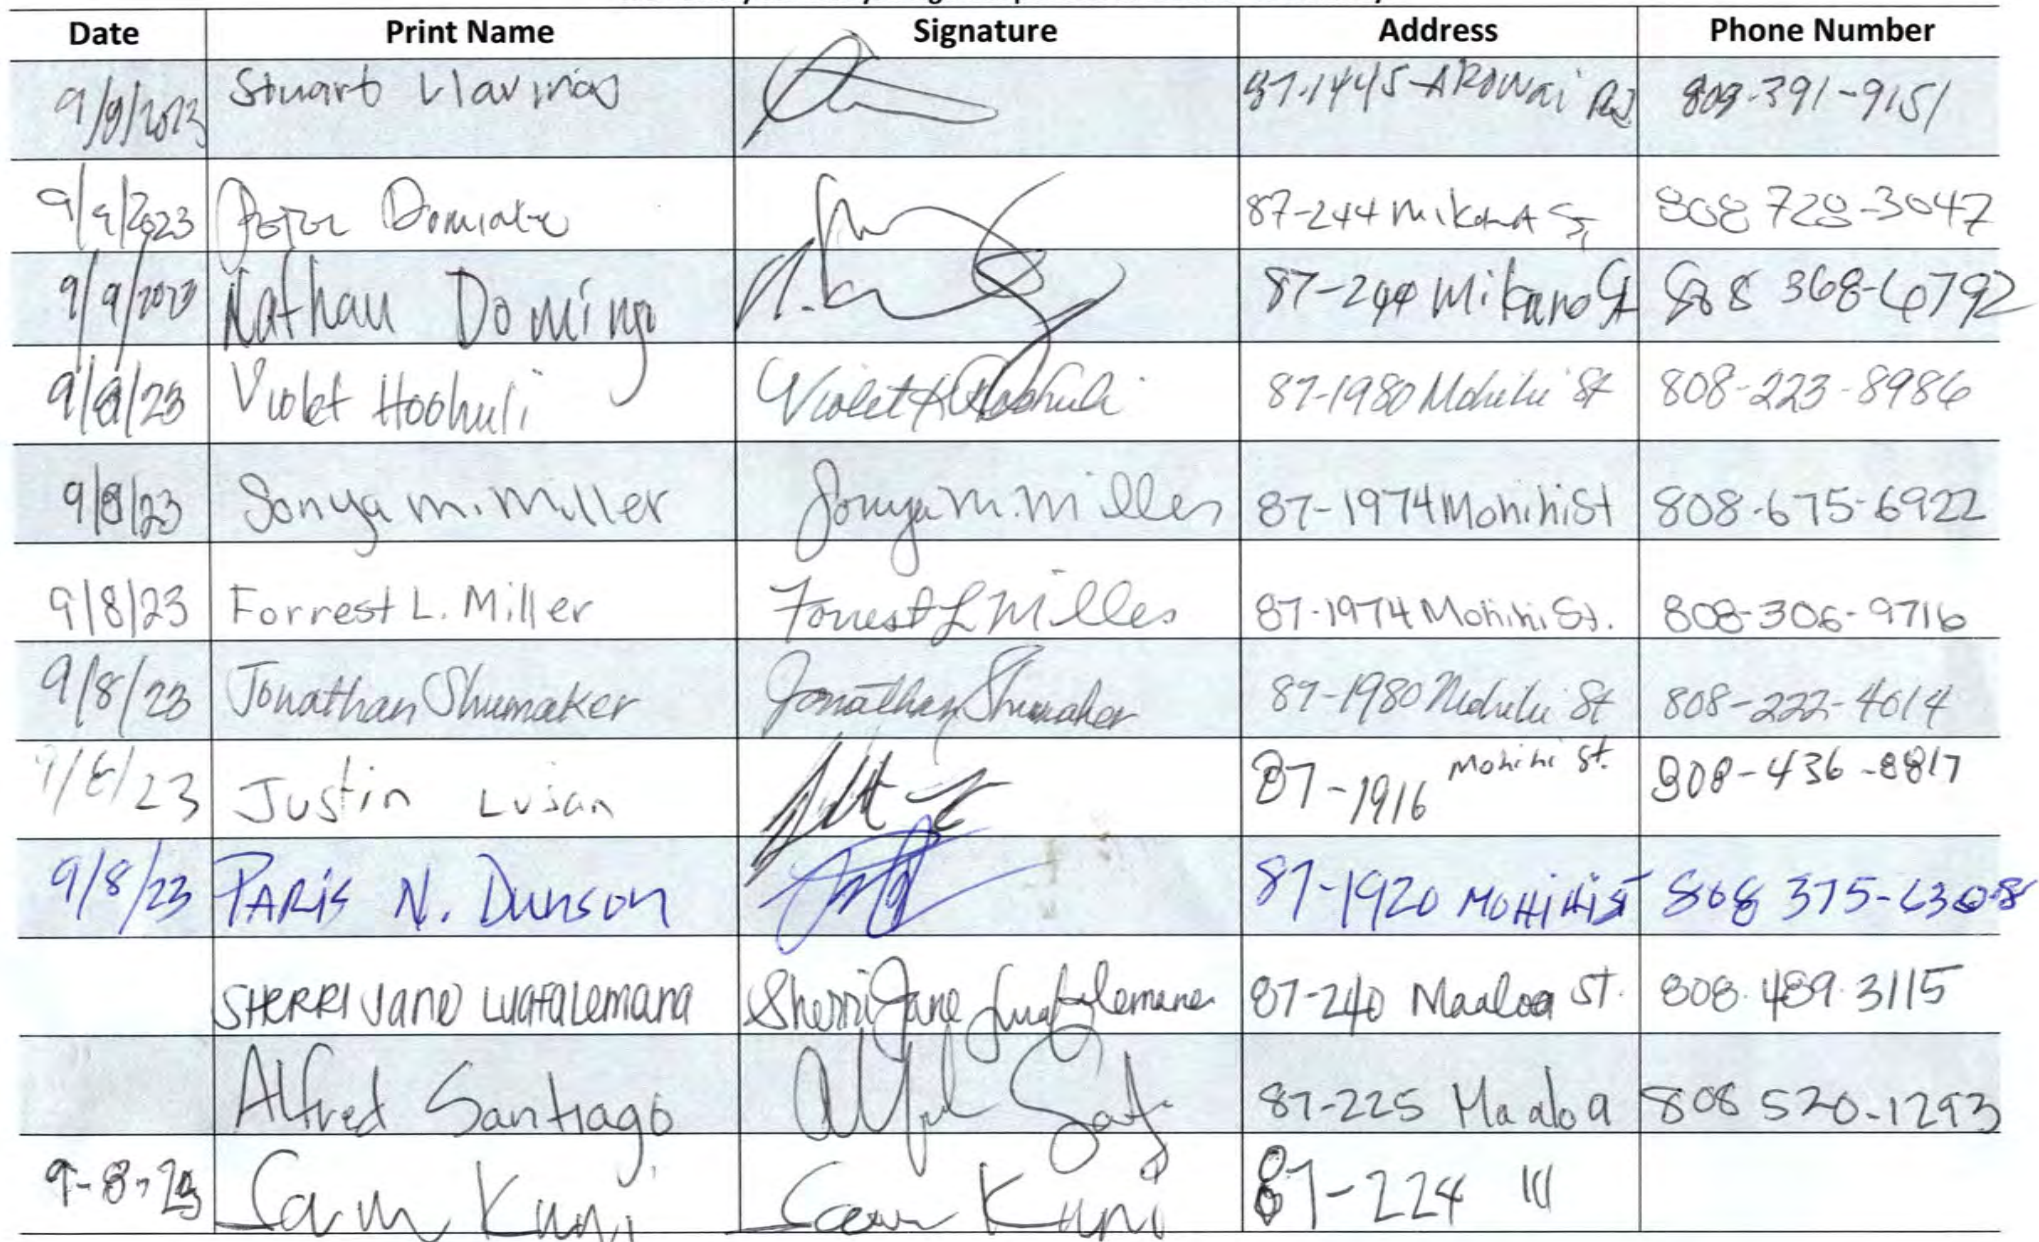 Date Print Name Signature Address Phone Number
9/9/2023 Stuart Llavinas 87-1445 Rd 808-391-9151
9/9/2023 Peter 87-244 Mikana St 808 728-3047
9/9/2023 Nathan Domingo 87-244 Mikana St 808 368-6792
9/8/23 Violet Hoohuli Violet K Hoohuli 87-1980 Mohihi St 808-223-8986
9/8/23 Sonya M. Miller Sonya M. Miller 87-1974 Mohihi St 808-675-6922
9/8/23 Forrest L. Miller Forrest L Miller 87-1974 Mohihi St. 808-306-9716
9/8/23 Jonathan Shumaker Jonathan Shumaker 87-1980 Mohihi St 808-222-4014
9/8/23 Justin Lujan 87-1916 Mohihi St. 808-436-8817
9/8/23 PARIS N. Dunson 87-1920 MOHIHI ST 808 375-6308
SHERRI Jane Luafalemana Sherri Jane Luafalemana 87-240 Maaloa St. 808.489.3115
Alfred Santiago 87-225 Maaloa 808 520-1293
9-8-23 Sam Kuni Sam Kuni 87-224 "